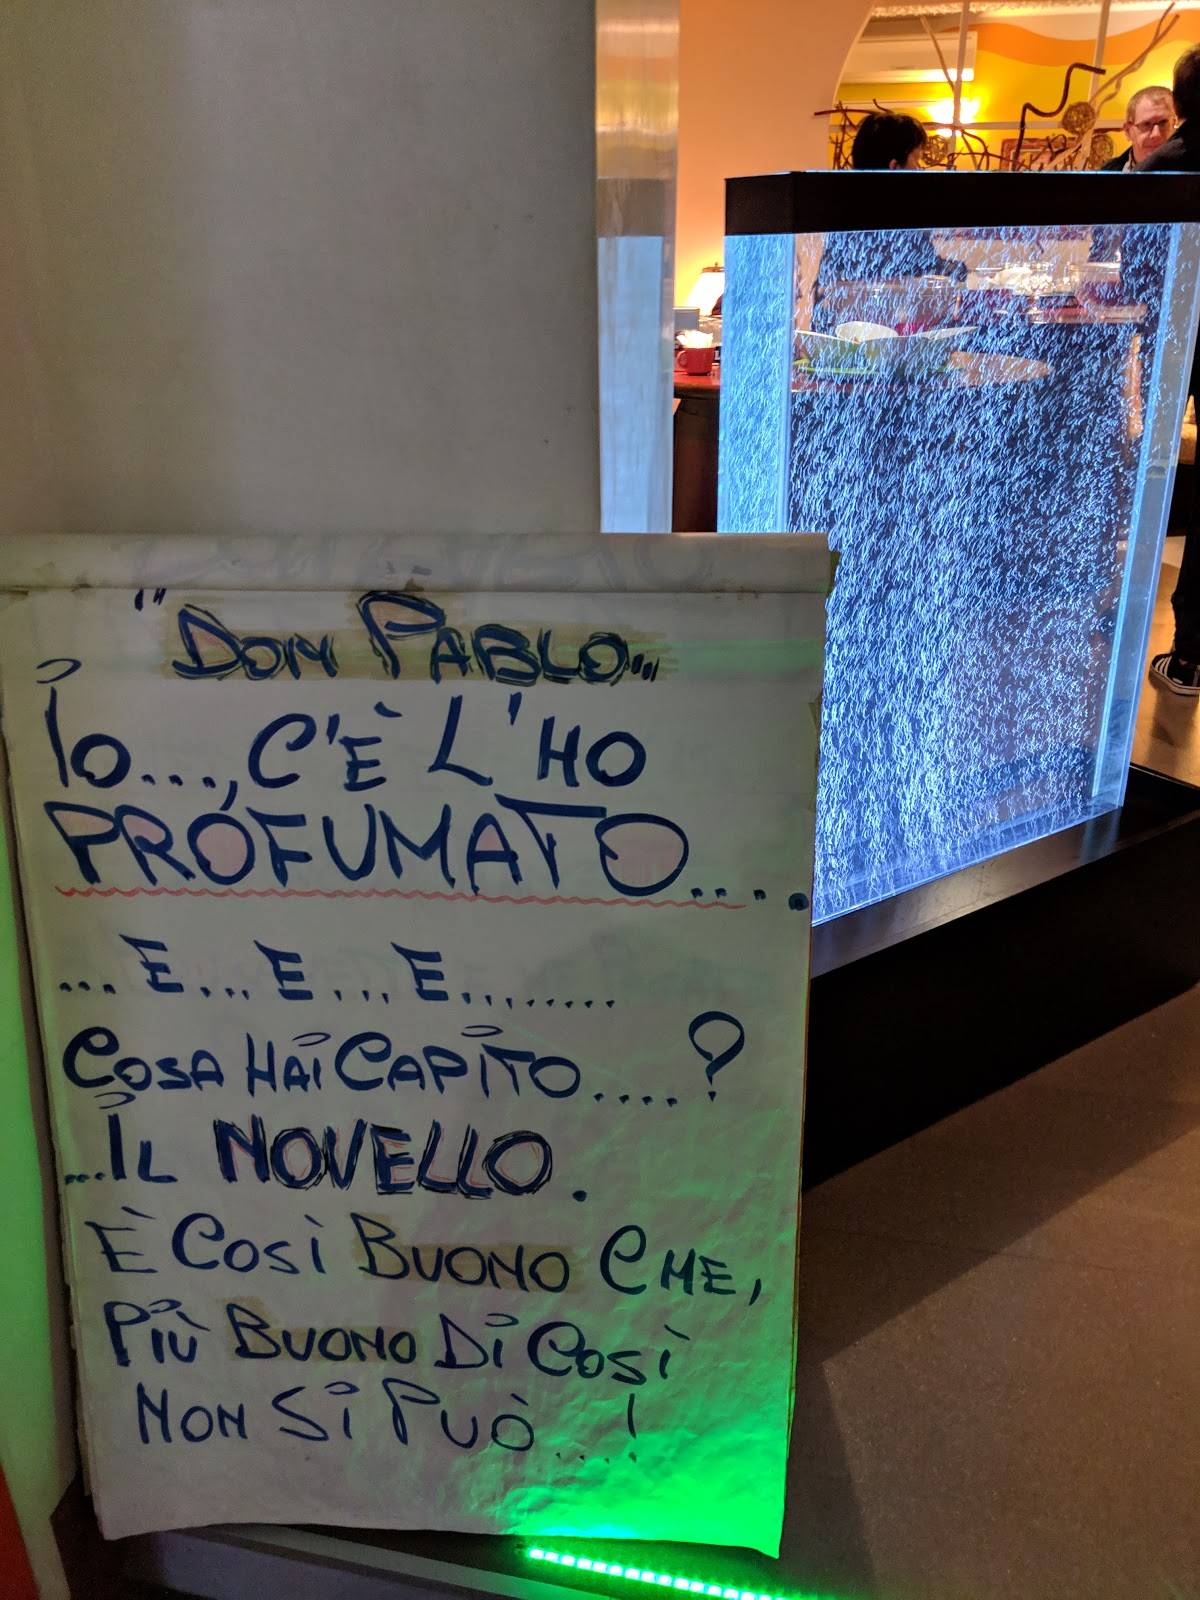 "DON PABLO..."
IO..., C'È L'HO
PROFUMATO....
... E... E... E........
COSA HAI CAPITO....?
...IL NOVELLO.
È COSÌ BUONO CHE,
PIÙ BUONO DI COSÌ
NON SI PUÒ...!